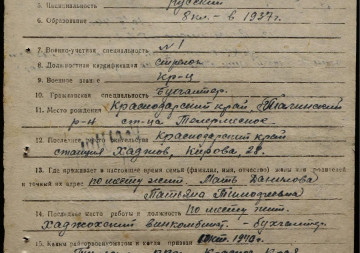 5. Национальность Русский
6. Образование 8 кл. - в 1937 г.
7. Военно-учетная специальность №1
8. Должностная квалификация стрелок
9. Военное звание кр-ц
10. Гражданская специальность Бухгалтер.
11. Место рождения Краснодарский край
р-н ст-ца
12. Краснодарский край
станция Хаджох, Кирова, 28.
13. Где проживает в настоящее время семья (фамилия, имя, отчество) жены или родителей
и точный их адрес по месту жит. Мать Данилова
Татьяна Тимофеевна
14. Последнее место работы и должность По месту жит.
Хаджохский - бухгалтер.
15. Каким райвоенкоматом и когда призван 1940 г.